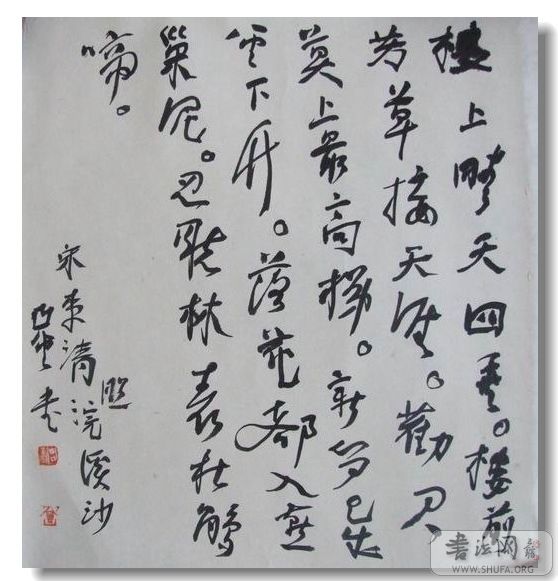 樓上晴天四垂。樓前
芳草接天涯。勸君
莫上最高梯。新笋已成
堂下竹。落花都入燕
巢泥。忍聽林表杜鵑
啼。
宋李清照浣溪沙
书
書法网
WWW.SHUFA.ORG